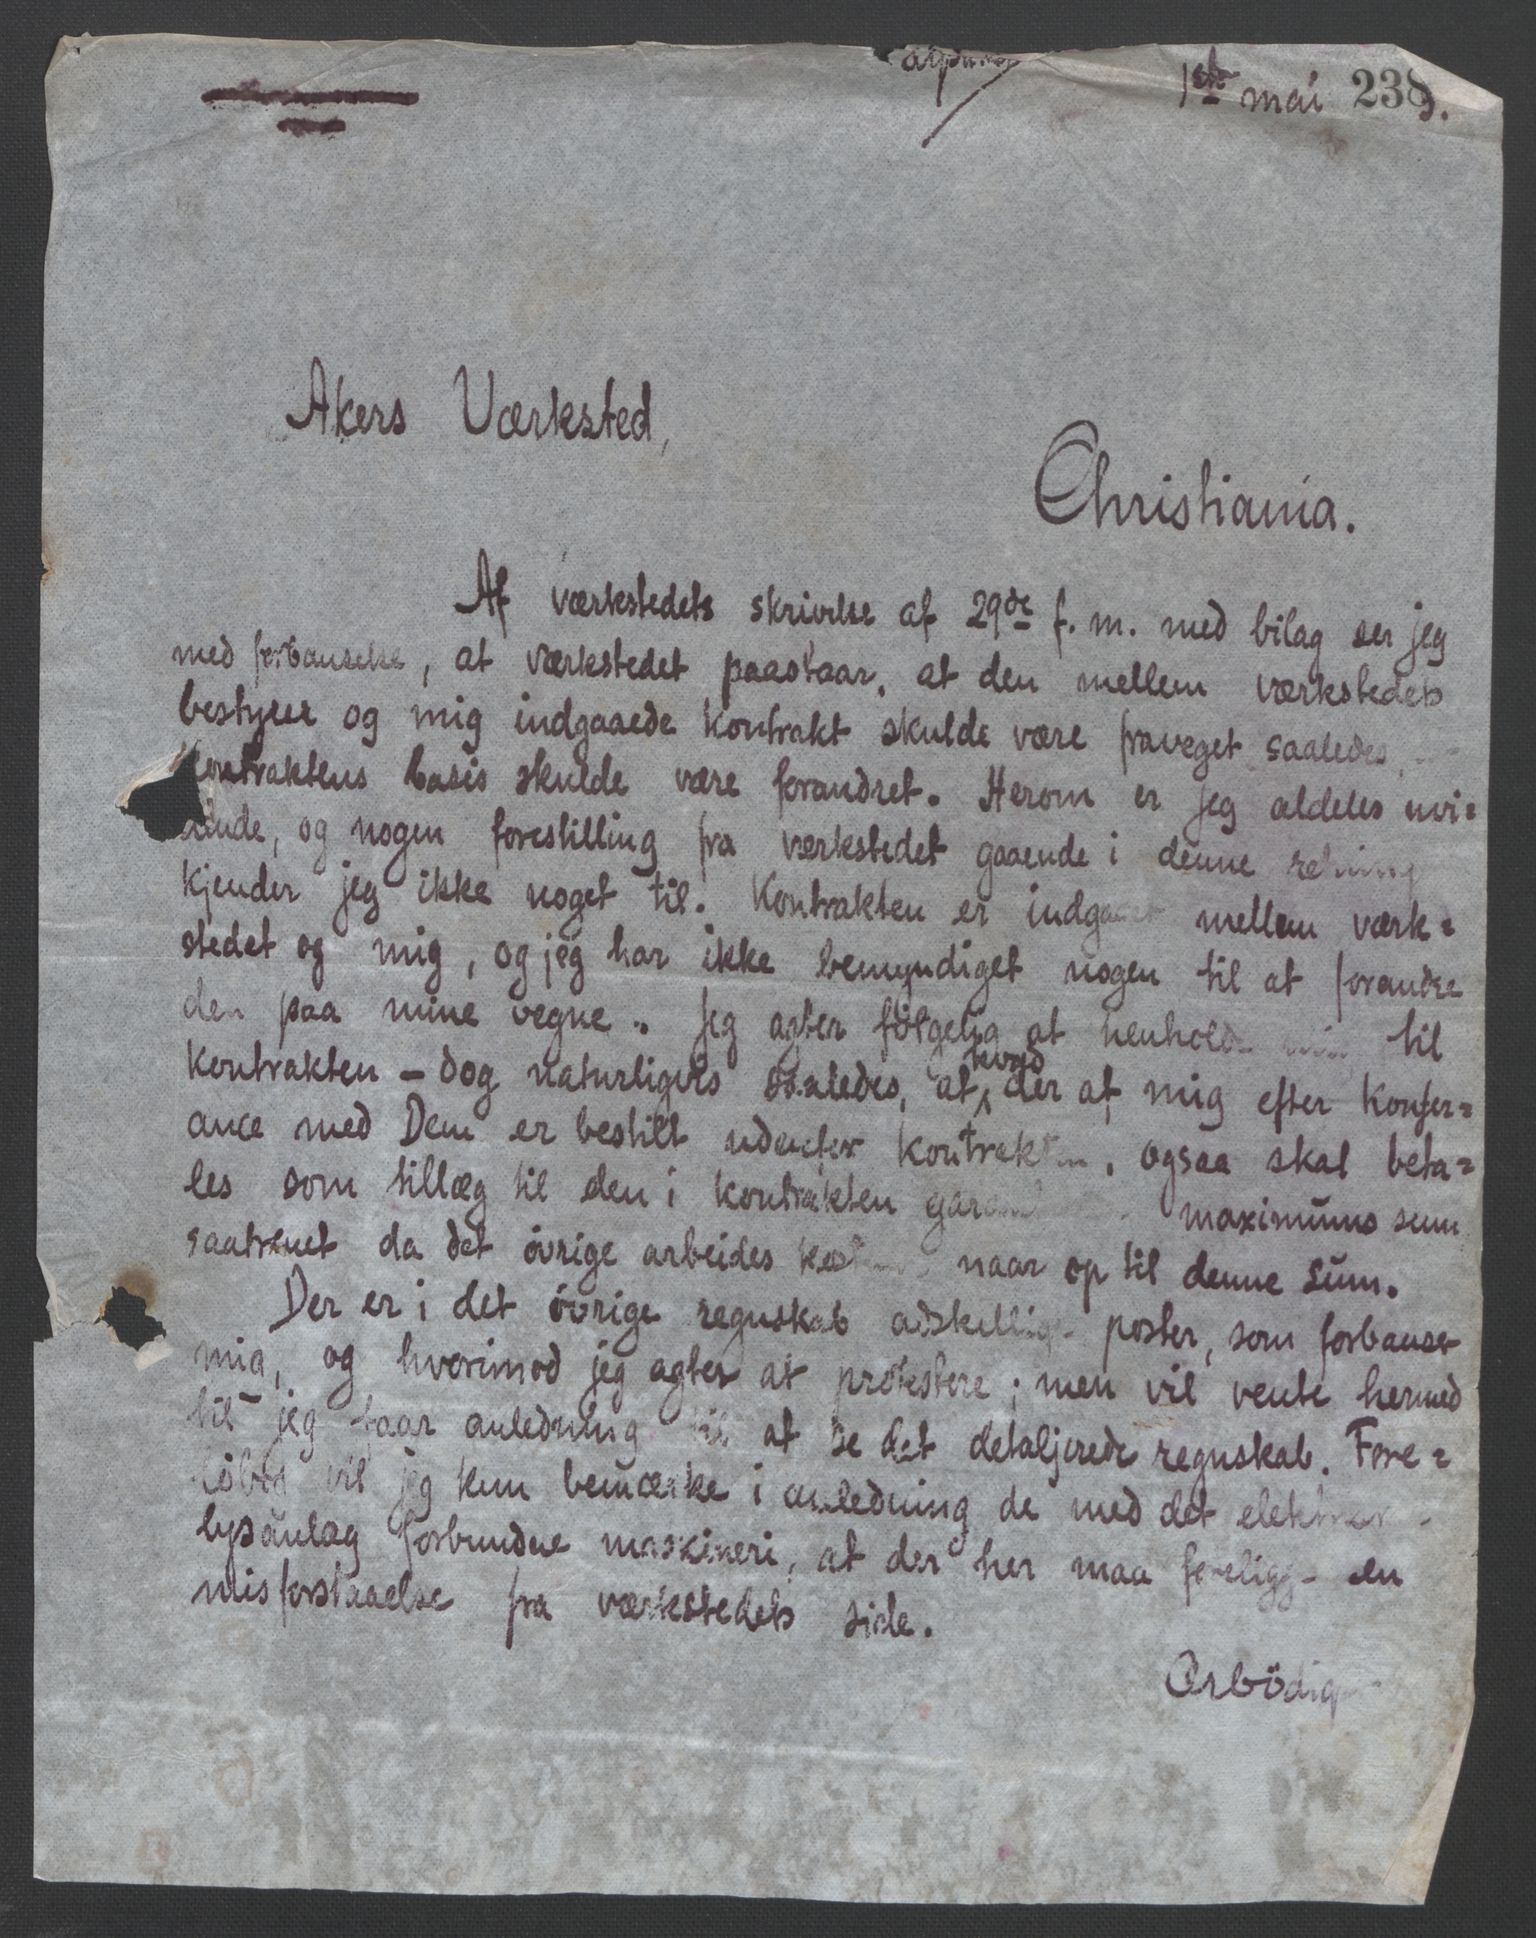 1ste mai 238
Akers Værksted,
Christiania.
Af værkstedets skrivelse af 29de f. m. med bilag ser jeg
med forbauselse, at værkstedet paastaar, at den mellem værkstedets
bestyrer og mig indgaaede kontrakt skulde være fraveget saaledes,
kontraktens basis skulde være forandret. Herom er jeg aldeles uvi=
dende, og nogen forestilling fra værkstedet gaaende i denne retning
kjender jeg ikke noget til. Kontrakten er indgaaet mellem værk=
stedet og mig, og jeg har ikke bemyndiget nogen til at forandre
den paa mine vegne. Jeg agter følgelig at henholde mig til
kontrakten – dog naturligvis saaledes, at hvad der af mig efter konfer=
ance med Dem er bestilt udenfor kontrakten, ogsaa skal beta=
les som tillæg til den i kontrakten maximums sum
saafremt da det øvrige arbeides kostende naar op til denne sum.
Der er i det øvrige regnskab adskillige poster, som forbauser
mig, og hvorimod jeg agter at protestere; men vil vente hermed
til jeg faar anledning til at se det detaljerede regnskab. Fore=
løbig vil jeg kun bemærke i anledning de med det elektriske
lysanlæg forbundne maskineri, at der her maa foreligge en
misforstaaelse fra værkstedets side.
Ærbødigst